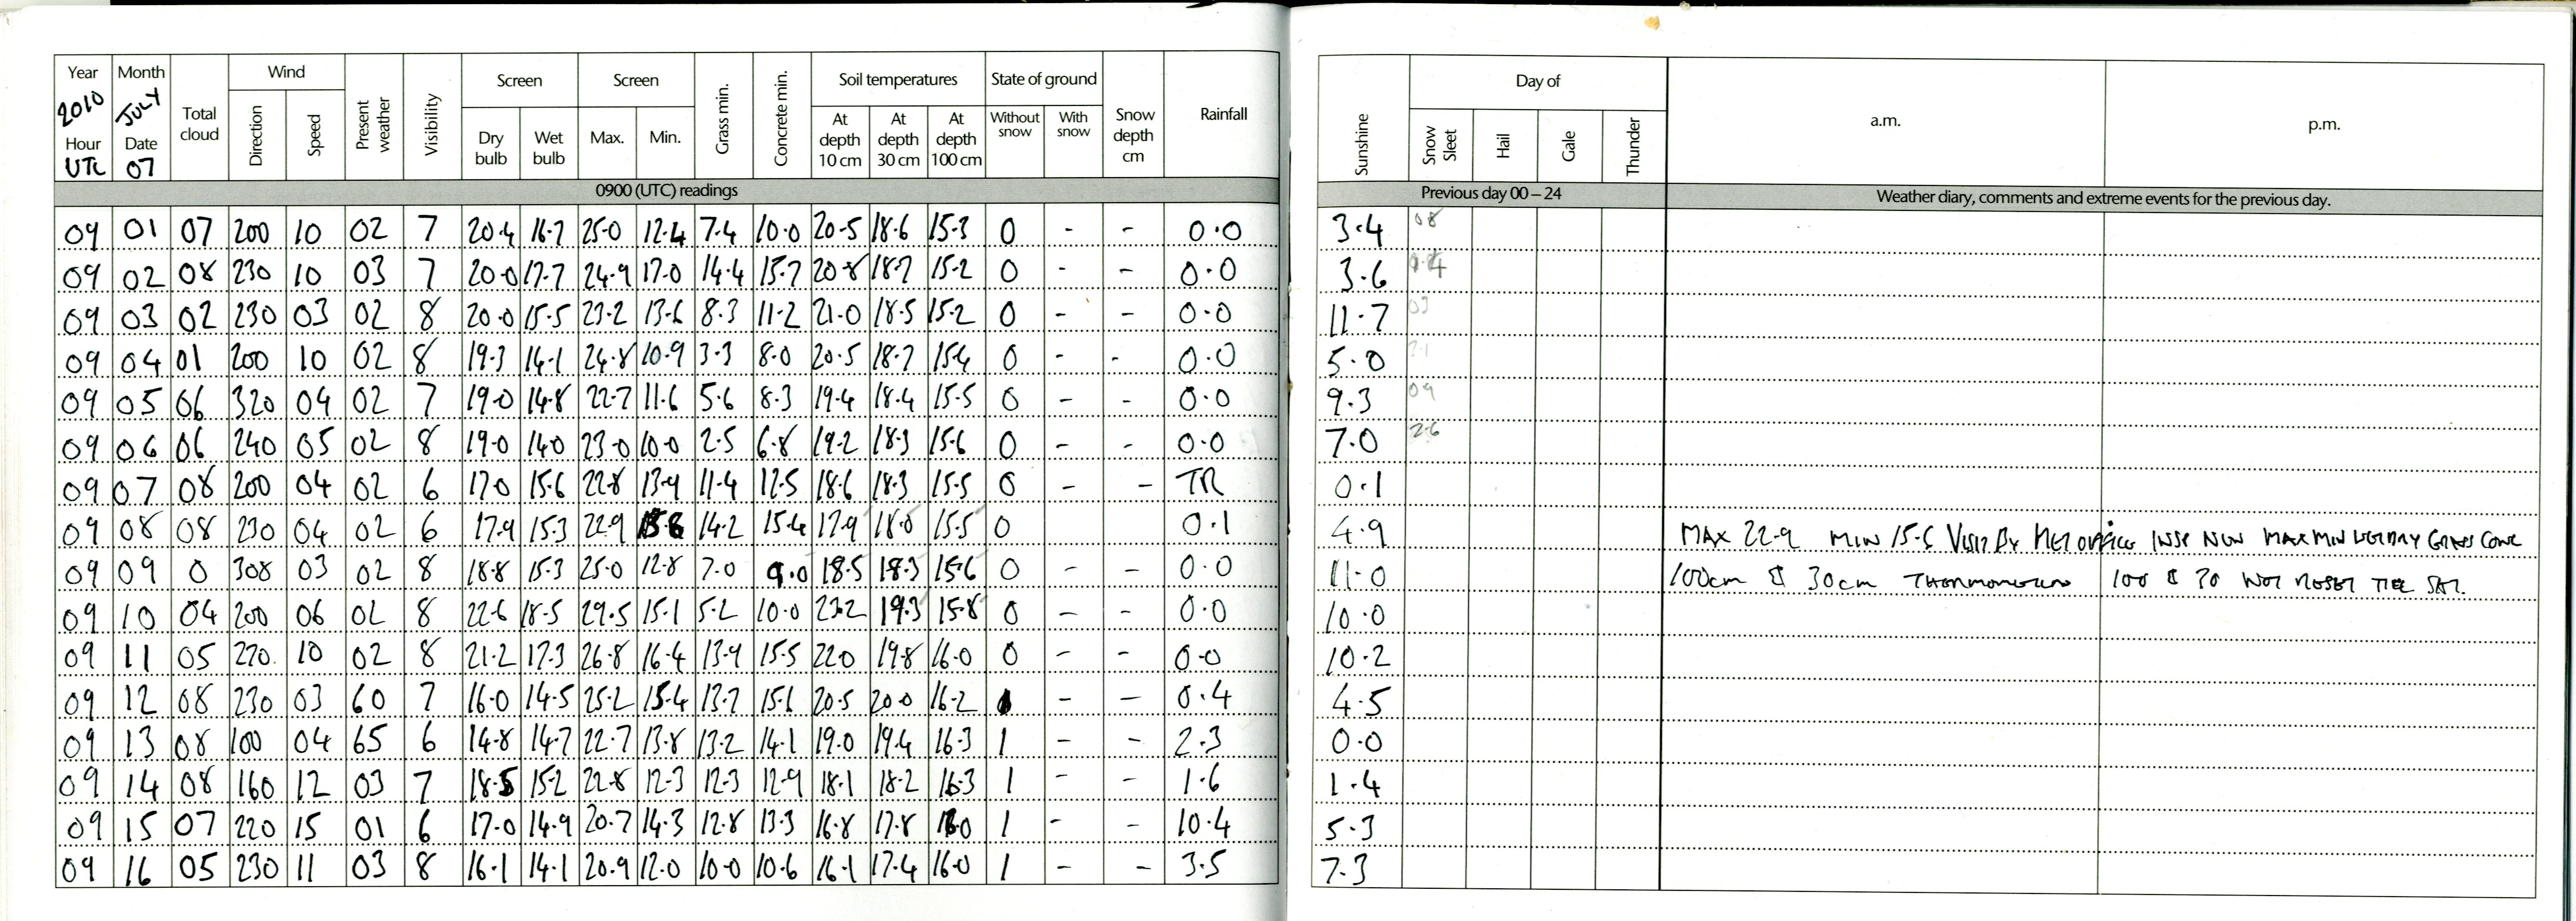 Year Month Total cloud Wind Present weather Visibility Screen Screen Grass min. Concrete min. Soil temperatures State of ground Snow depth cm Rainfall Sunshine Day of a.m. p.m.
2010 JULY Direction Speed Dry bulb Wet bulb Max. Min. At depth 10 cm At depth 30 cm At depth 100 cm Without snow With snow Snow Sleet Hail Gale Thunder
Hour Date
UTC 07
0900 (UTC) readings Previous day 00 – 24 Weather diary, comments and extreme events for the previous day.
09 01 07 200 10 02 7 20.4 16.7 25.0 12.4 7.4 10.0 20.5 18.6 15.3 0 - - 0.0 3.4 08
09 02 08 230 10 03 7 20.0 17.7 24.9 17.0 14.4 15.7 20.8 18.7 15.2 0 - - 0.0 3.6
09 03 02 230 03 02 8 20.0 15.5 23.2 13.6 8.3 11.2 21.0 18.5 15.2 0 - - 0.0 11.7 03
09 04 01 200 10 02 8 19.3 14.1 24.8 10.9 3.3 8.0 20.5 18.7 15.4 0 - - 0.0 5.0
09 05 06 320 04 02 7 19.0 14.8 22.7 11.6 5.6 8.3 19.4 18.4 15.5 0 - - 0.0 9.3 09
09 06 06 240 05 02 8 19.0 14.0 23.0 10.0 2.5 6.8 19.2 18.3 15.6 0 - - 0.0 7.0 2.6
09 07 08 200 04 02 6 17.0 15.6 22.8 13.9 11.4 12.5 18.6 18.3 15.5 0 - - TR 0.1
09 08 08 230 04 02 6 17.9 15.3 22.9 15.6 14.2 15.4 17.9 18.0 15.5 0 0.1 4.9 MAX 22.9 MIN 15.6 VISIT BY MET OFFICE INSP NEW MAX MIN WET DRY GRASS CONC
09 09 0 308 03 02 8 18.8 15.3 25.0 12.8 7.0 9.0 18.5 18.3 15.6 0 - - 0.0 11.0 100cm & 30cm THERMOMETERS 100 & 30 NOT RESET
09 10 04 200 06 02 8 22.6 18.5 29.5 15.1 5.2 10.0 23.2 19.3 15.8 0 - - 0.0 10.0
09 11 05 270 10 02 8 21.2 17.3 26.8 16.4 13.9 15.5 22.0 19.8 16.0 0 - - 0.0 10.2
09 12 08 230 03 60 7 16.0 14.5 25.2 15.4 13.7 15.1 20.5 20.0 16.2 1 - - 0.4 4.5
09 13 08 100 04 65 6 14.8 14.7 22.7 13.8 13.2 14.1 19.0 19.4 16.3 1 - - 2.3 0.0
09 14 08 160 12 03 7 18.5 15.2 22.8 12.3 12.3 12.9 18.1 18.2 16.3 1 - - 1.6 1.4
09 15 07 220 15 01 6 17.0 14.9 20.7 14.3 12.8 13.3 16.8 17.8 1 - - 10.4 5.3
09 16 05 230 11 03 8 16.1 14.1 20.9 12.0 10.0 10.6 16.1 17.4 16.0 1 - - 3.5 7.3